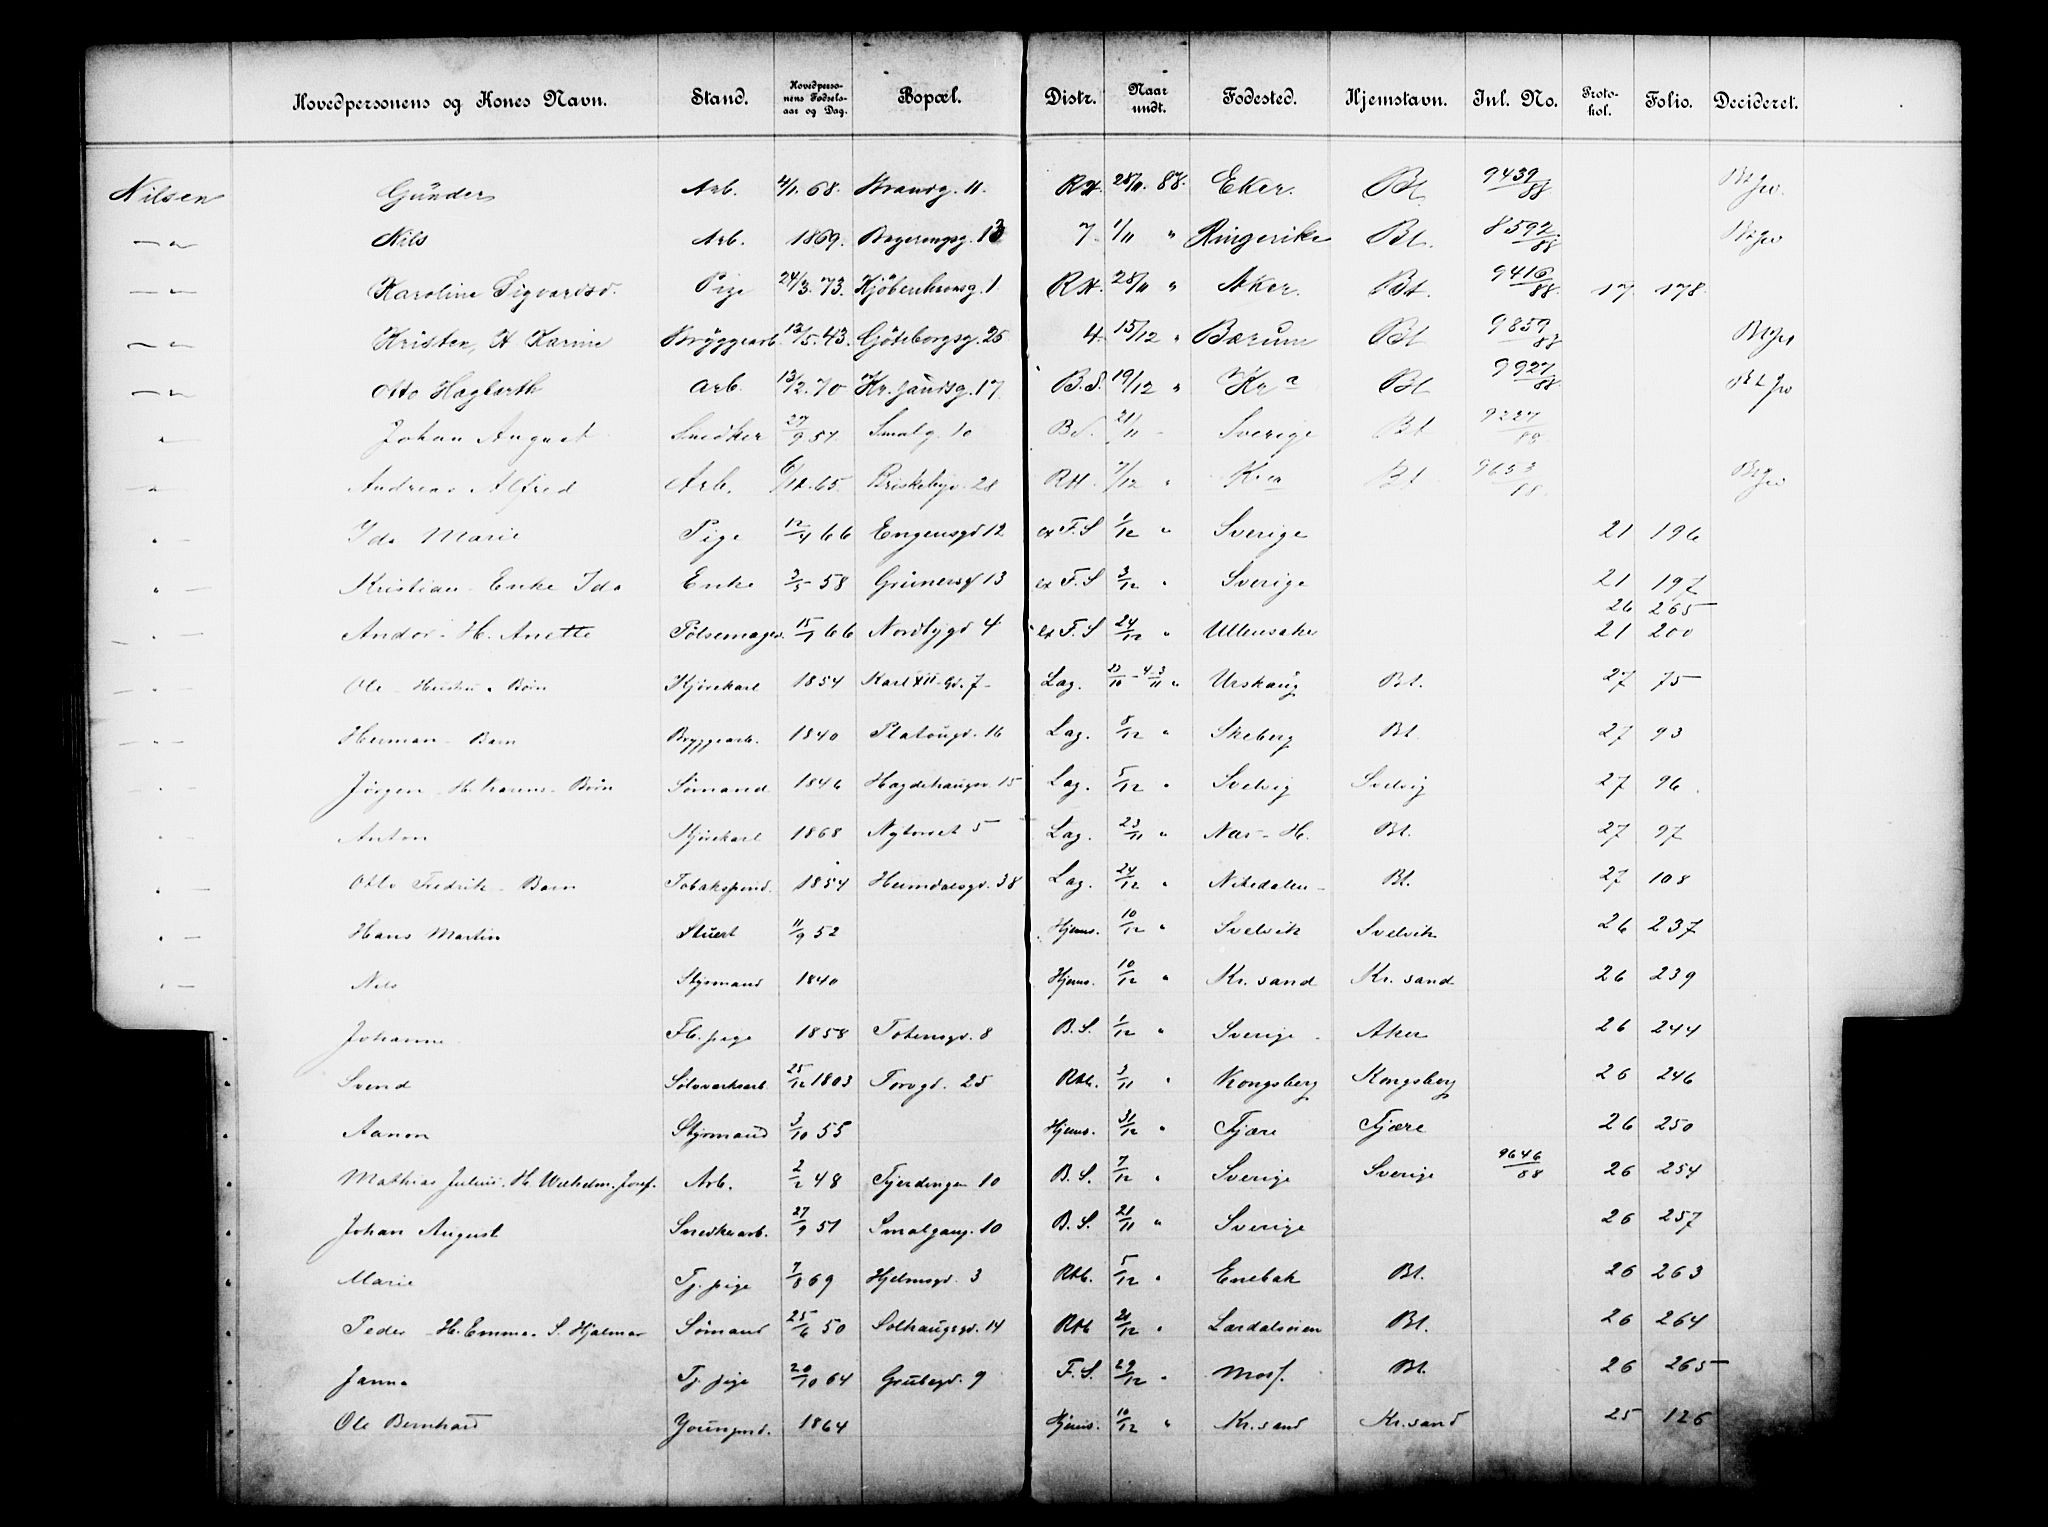 Hovedpersonens og Kones Navn. Stand. Hovedpersonens Fødselsaar og Dag. Bopæl. Distr. Naar undt. Fødested. Hjemstavn. Inl. No. Protokol. Folio. Decideret.
Nilsen Gunder Arb. 4/1. 68. Brandg. 11. RH. 28/11. 88. Eker. Bt. 9439/88
—"— Nils Arb. 1869. 7. 1/11 " Ringerike Bt. 8592/88
—"— Karoline Sigvartsd. Pige 24/3. 73. Kjøbenhavnsg. 1. RH. 28/11 " Aker. Bt. 9416/88. 17. 178.
—"— Kristen, H Karine Bryggearb. 12/5. 43. Göteborgsg. 25 4. 15/12 " Bærum Bt 9859/88
—"— Otto Hagbarth Arb. 13/12. 70 Kr. sandsg. 17. B.S. 19/12 " Kra Bt 9927/88
" Johan August Snedker 27/9 51 Smalg. 10 BS. 21/11 - Sverige Bt 9227/88
—"— Andreas Alfred Arb. 6/12. 65. Briskebyv. 28 RH. 7/12 " Kra Bt 9653/88.
" — Ida Marie Pige 12/4 66 Engensgd 12 ex F.S 1/12 " Sverige 21 196
" — Kristian - Enke Ida Enke 3/5 - 58 Grünersgd 13 ex F.S 3/12 " Sverige 21 197
26 265
— " — Andor - H. Anette Pølsemager 15/1 66 Nordbygd 4 ex F.S 24/12 " Ullensaker 21 200
" — Ole - Hustru & Børn Kjørekarl 1854 Karl XII-Gd. 7 - Lag. 23/10 - 4 3/11 " Urskaug Bt. 27 75
— " — Herman - Barn Bryggearb. 1840 Platougd. 16 Lag. 8/12 " Skeberg Bt. 27 93
" — Jørgen - H. Karen - Børn Sømand 1846 Hagdehaugsv. 15 Lag. 5/12 " Svelvig Svelvig 27 96
" — Anton Kjørekarl 1868 Nytorvet 5 Lag. 23/11 " Næs - H. Bt. 27 97
" — Otto Fredrik - Barn Tobakspind. 1854 Heimdalsgd. 38 Lag. 24/12 " Nitedalen - Bt. 27 108
" — Hans Martin Stuert 11/9 52 Hjems. 10/12 " Svelvik Svelvik 26 237
" — Nils Styrmand 1840 Hjems. 10/12 " Kr. sand Kr. sand 26 239
" Johanne Fb. pige 1858 Totensgd. 8 B.S. 1/12 " Sverige - Aker 26 244
" Svend Sølvverksarb. 25/12 1803 Torvgd. 25 Rtb. 3/11 " Kongsberg Kongsberg 26 246
" Aanon Styrmand 3/10 55 Hjems. 31/12 " Fjære Fjære 26 250
" Mathias Julius. H. Wilhelm. Josf. Arb. 2/2 48 Fjerdingen 10 B.S. 7/12 " Sverige Sverige 9646/88 26 254
" Johan August Snedkerarb. 27/9 51 Smalgang. 10 B.S. 21/11 " Sverige 26 257
" Marie Tj. pige 7/8 69 Hjelmsgd. 3 Rtb. 5/12 " Enebak Bt. 26 263
" Peder - H. Emma. S. Hjalmar Sømand 25/6 50 Solhaugsgd. 14 Rtb 21/12 " Lærdalsøren Bt. 26 264
" Janna Tj. pige 20/10 64 Grubegd. 9 F.S. 29/12 " Moss. Bt. 26 265
" Ole Bernhard Joungmd. 1864 Hjems. 10/12 " Kr. sand Kr. sand 25 126